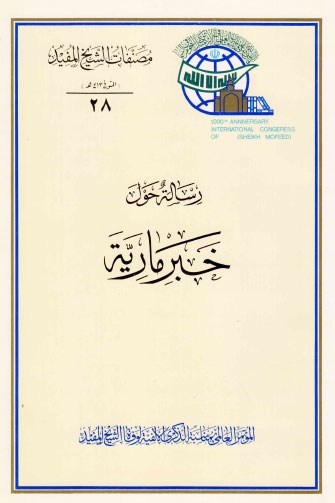 مصنفات الشيخ المفيد
(المتوفى ٤١٣ هـ)
٢٨
لا إله إلا الله
1000TH ANNIVERSARY
INTERNATIONAL CONGERESS
OF (SHEIKH MOFEED)
رسالة حول
خبر مارية
المؤتمر العالمي بمناسبة الذكرى الألفية لوفاة الشيخ المفيد